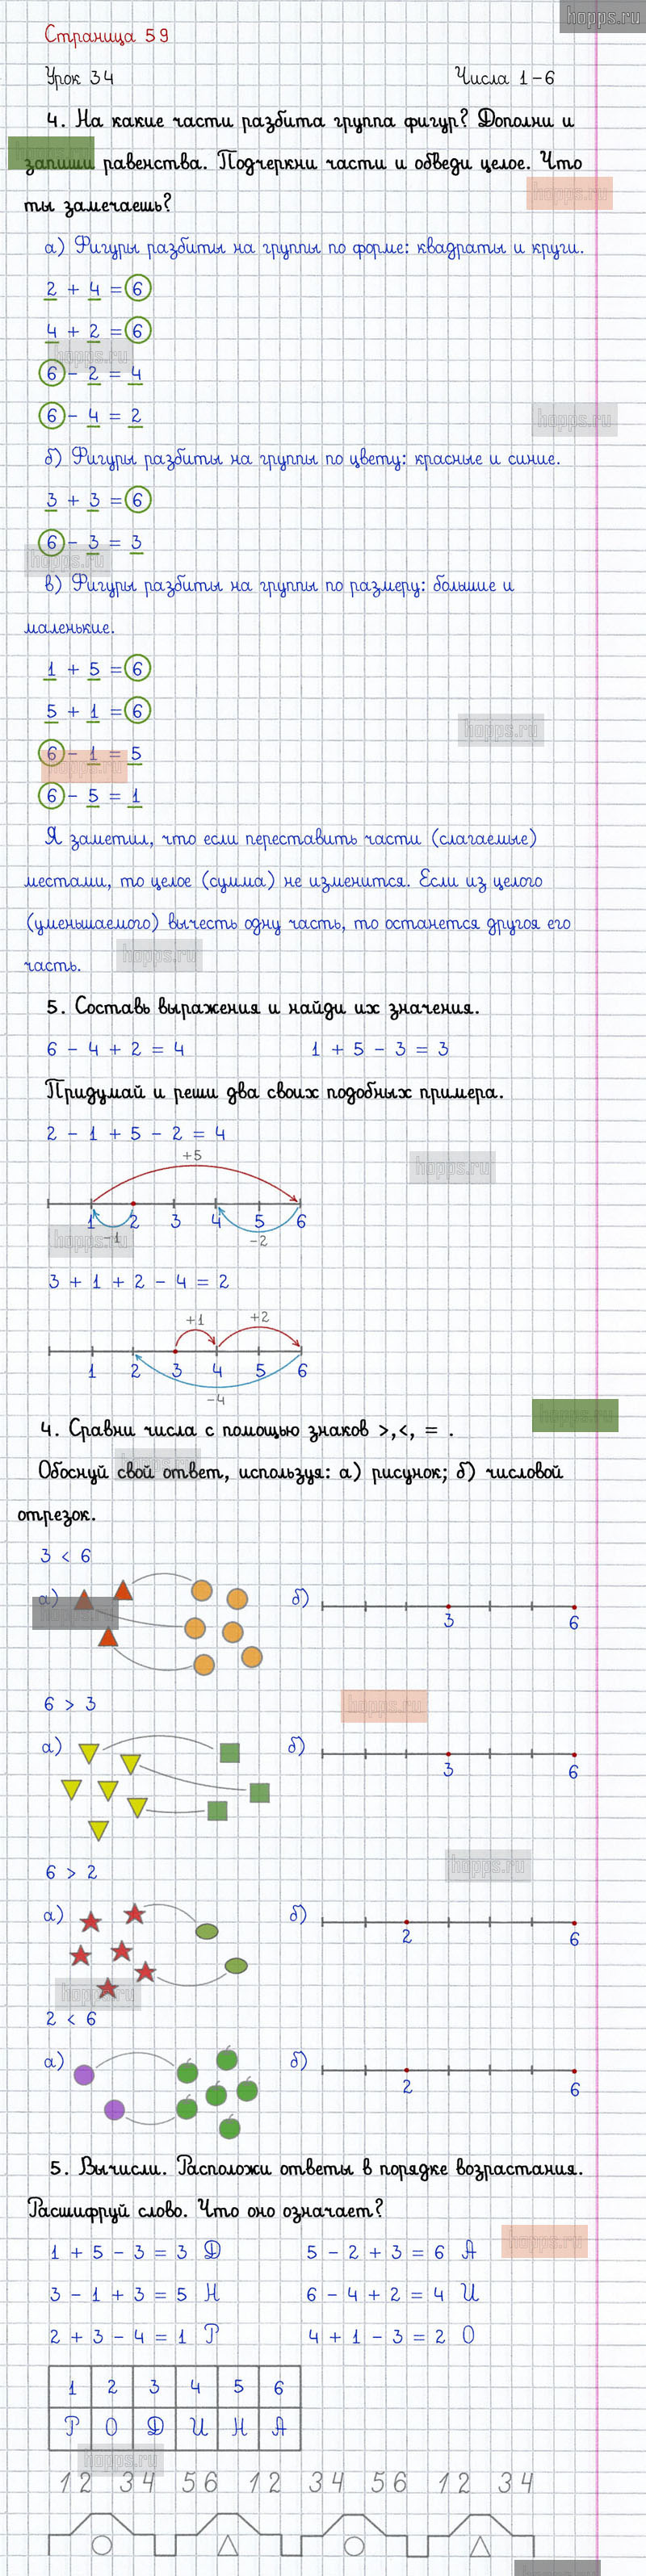 hopps.ru
Страница 59
Урок 34 Числа 1-6
4. На какие части разбита группа фигур? Дополни и
запиши равенства. Подчеркни части и обведи целое. Что
hopps.ru
ты замечаешь?
а) Фигуры разбиты на группы по форме: квадраты и круги.
2 + 4 = 6
4 + 2 = 6
hopps.ru
6 - 2 = 4
6 - 4 = 2
hopps.ru
б) Фигуры разбиты на группы по цвету: красные и синие.
3 + 3 = 6
6 - 3 = 3
hopps.ru
в) Фигуры разбиты на группы по размеру: большие и
маленькие.
1 + 5 = 6
5 + 1 = 6
hopps.ru
6 - 1 = 5
6 - 5 = 1
Я заметил, что если переставить части (слагаемые)
местами, то целое (сумма) не изменится. Если из целого
(уменьшаемого) вычесть одну часть, то останется другоя его
hopps.ru
часть.
5. Составь выражения и найди их значения.
6 - 4 + 2 = 4 1 + 5 - 3 = 3
Придумай и реши два своих подобных примера.
2 - 1 + 5 - 2 = 4
+5
hopps.ru
1 2 3 4 5 6
-1 -2
hopps.ru
3 + 1 + 2 - 4 = 2
+1 +2
1 2 3 4 5 6
-4
hopps.ru
4. Сравни числа с помощью знаков >,<, = .
Обоснуй свой ответ, используя: а) рисунок; б) числовой
отрезок.
3 < 6
а) б)
3 6
6 > 3
hopps.ru
а) б)
3 6
6 > 2
hopps.ru
а) б)
2 6
hopps.ru
2 < 6
а) б)
2 6
5. Вычисли. Расположи ответы в порядке возрастания.
Расшифруй слово. Что оно означает?
1 + 5 - 3 = 3 Д 5 - 2 + 3 = 6 А
hopps.ru
3 - 1 + 3 = 5 Н 6 - 4 + 2 = 4 И
2 + 3 - 4 = 1 Р 4 + 1 - 3 = 2 О
1 2 3 4 5 6
Р О Д И Н А
hopps.ru
12 34 56 12 34 56 12 34